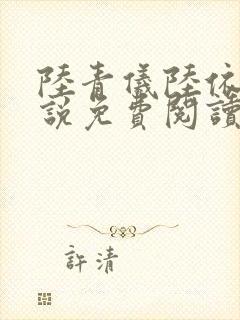 陸青儀陸依
說免費閱讀
許清